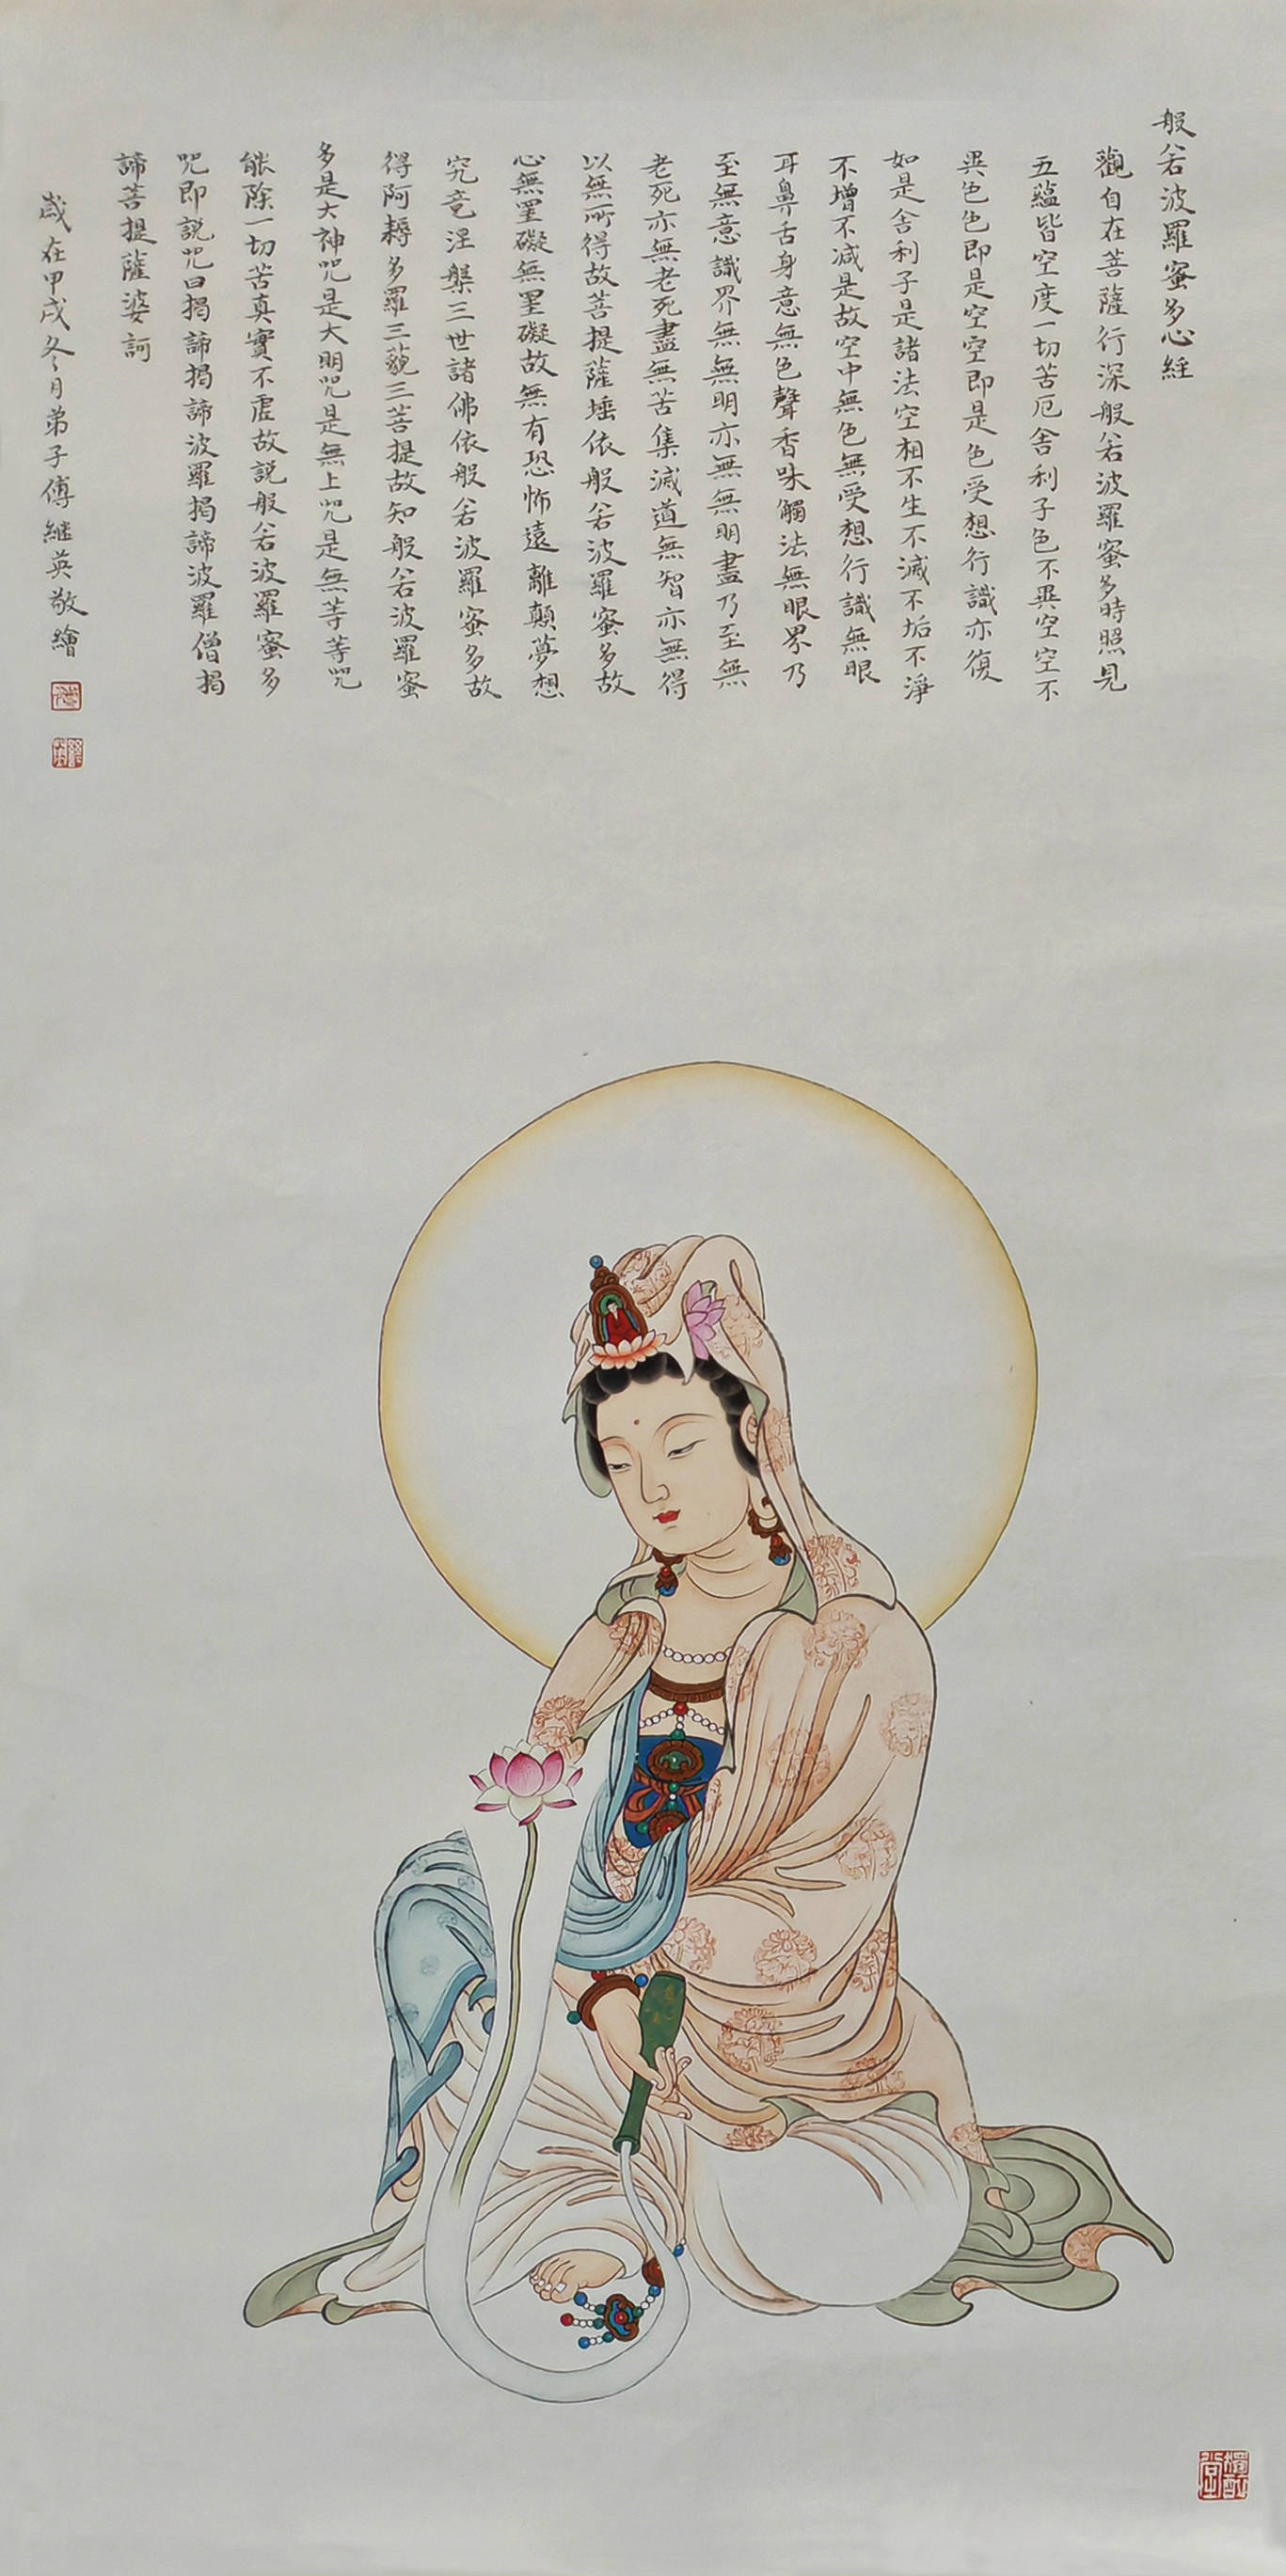 般若波羅蜜多心經
觀自在菩薩行深般若波羅蜜多時照見
五蘊皆空度一切苦厄舍利子色不異空空不
異色色即是空空即是色受想行識亦復
如是舍利子是諸法空相不生不滅不垢不淨
不增不減是故空中無色無受想行識無眼
耳鼻舌身意無色聲香味觸法無眼界乃
至無意識界無無明亦無無明盡乃至無
老死亦無老死盡無苦集滅道無智亦無得
以無所得故菩提薩埵依般若波羅蜜多故
心無罣礙無罣礙故無有恐怖遠離顛夢想
究竟涅槃三世諸佛依般若波羅蜜多故
得阿耨多羅三藐三菩提故知般若波羅蜜
多是大神咒是大明咒是無上咒是無等等咒
能除一切苦真實不虛故說般若波羅蜜多
咒即說咒曰揭諦揭諦波羅揭諦波羅僧揭
諦菩提薩婆訶
歲在甲戌冬月弟子傅継英敬繪